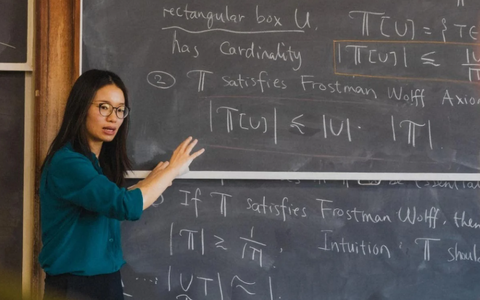 rectangular box U.
has Cardinality
𝕋[U] = { T∈
|𝕋[U]| ≤ |U|
② 𝕋 satisfies Frostman Wolff Axiom
|𝕋[U]| ≲ |U| · |𝕋|
If 𝕋 satisfies Frostman Wolff, then
|𝕋| ≥ 1/|T|, Intuition: 𝕋 shoul
|U𝕋| ≈ 1